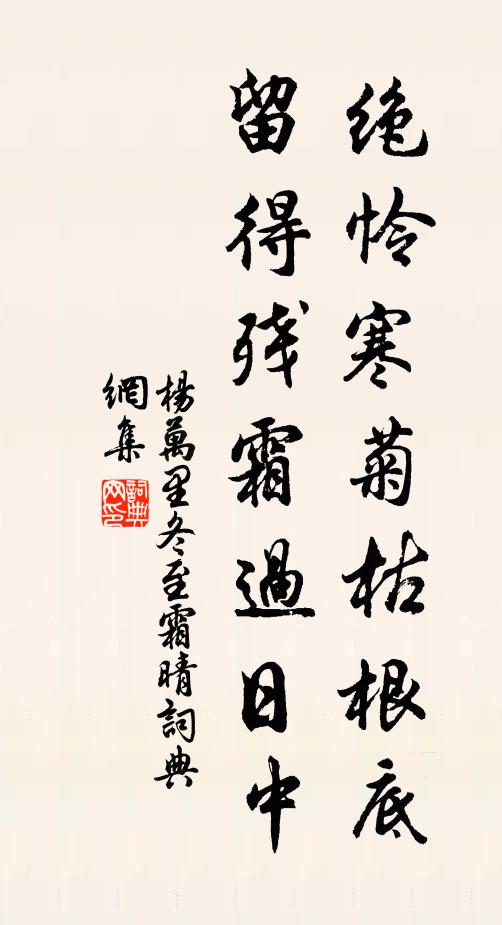 绝怜寒菊枯根底
留得残霜過日中
楊萬里冬至霜晴詞典
網集
詞典
网印